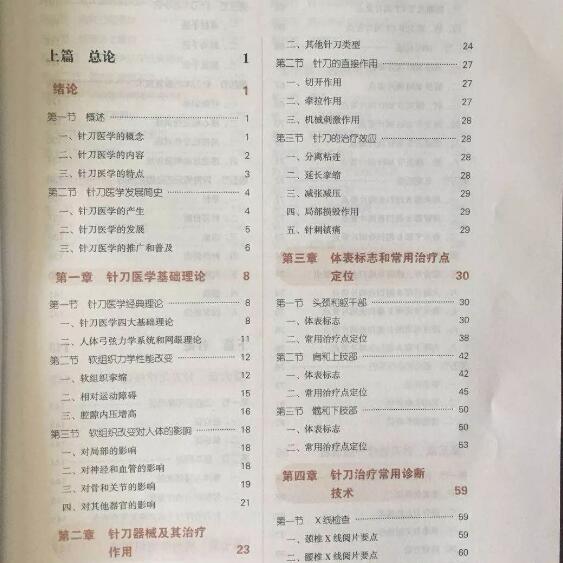 上篇 总论 1
绪论 1
第一节 概述 1
一、针刀医学的概念 1
二、针刀医学的内容 2
三、针刀医学的特点 3
第二节 针刀医学发展简史 4
一、针刀医学的产生 4
二、针刀医学的发展 5
三、针刀医学的推广和普及 6
第一章 针刀医学基础理论 8
第一节 针刀医学经典理论 8
一、针刀医学四大基础理论 8
二、人体弓弦力学系统和网眼理论 11
第二节 软组织力学性能改变 12
一、软组织挛缩 12
二、相对运动障碍 15
三、腔隙内压增高 16
第三节 软组织改变对人体的影响 18
一、对局部的影响 18
二、对神经和血管的影响 18
三、对骨和关节的影响 19
四、对其他器官的影响 21
第二章 针刀器械及其治疗
作用 23
二、其他针刀类型 24
第二节 针刀的直接作用 27
一、切开作用 27
二、牵拉作用 27
三、机械刺激作用 28
第三节 针刀的治疗效应 28
一、分离粘连 28
二、延长挛缩 28
三、减张减压 29
四、局部损毁作用 29
五、针刺镇痛 29
第三章 体表标志和常用治疗点
定位 30
第一节 头颈和躯干部 30
一、体表标志 30
二、常用治疗点定位 38
第二节 肩和上肢部 42
一、体表标志 42
二、常用治疗点定位 45
第三节 髋和下肢部 50
一、体表标志 50
二、常用治疗点定位 53
第四章 针刀治疗常用诊断
技术 59
第一节 X线检查 59
一、颈椎X线阅片要点 59
二、腰椎X线阅片要点 60